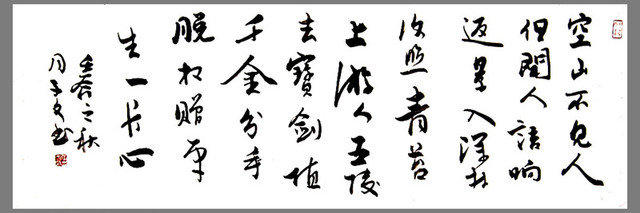 空山不見人
但聞人語响
返景入深林
復照青苔
上游人五陵
去寶劍值
千金分手
脱相贈平
生一片心
之秋